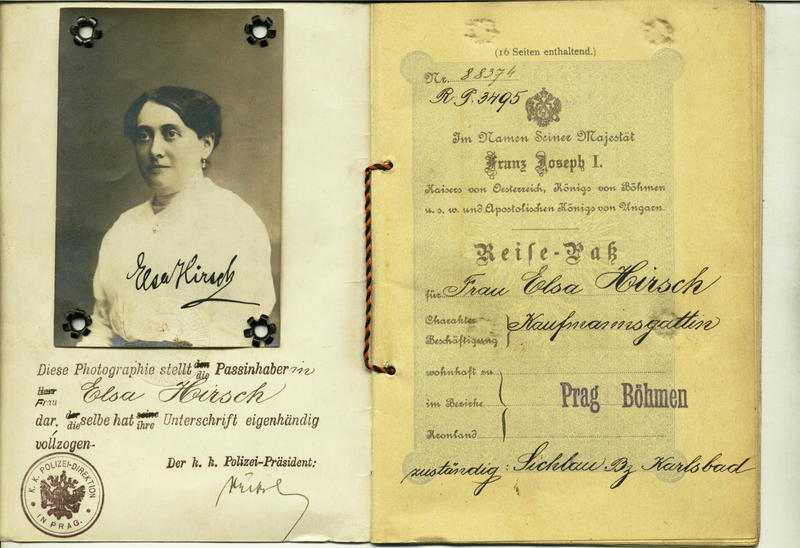 Elsa Hirsch
Diese Photographie stellt den die Passinhaber in
Herr Frau Elsa Hirsch
dar, der dieselbe hat seine ihre Unterschrift eigenhändig
vollzogen-
Der k. k. Polizei-Präsident:
K. K. POLIZEI-DIREKTION
IN PRAG.
(16 Seiten enthaltend.)
Nr. 88374
R. P. 3495
Im Namen Seiner Majestät
Franz Joseph I.
Kaisers von Oesterreich, Königs von Böhmen
u. s. w. und Apostolischen Königs von Ungarn.
Reise-Paß
für Frau Elsa Hirsch
Charakter
Beschäftigung } Kaufmannsgattin
wohnhaft zu
im Bezirke Prag Böhmen
Kronland
zuständig: Sichlau Bz Karlsbad